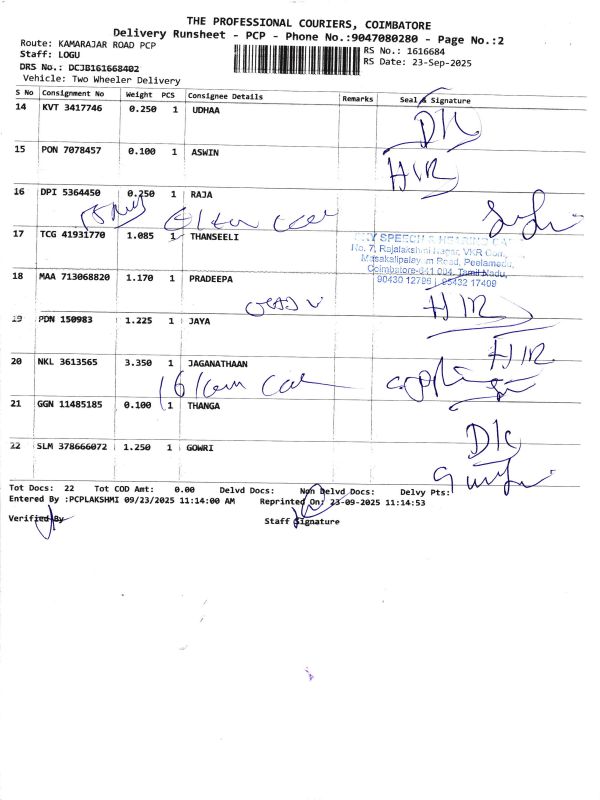 THE PROFESSIONAL COURIERS, COIMBATORE
Delivery Runsheet - PCP - Phone No.:9047080280 - Page No.:2
Route: KAMARAJAR ROAD PCP
RS No.: 1616684
Staff: LOGU
RS Date: 23-Sep-2025
DRS No.: DCJB161668402
Vehicle: Two Wheeler Delivery
S No Consignment No Weight PCS Consignee Details Remarks Seal & Signature
14 KVT 3417746 0.250 1 UDHAA
D/C
15 PON 7078457 0.100 1 ASWIN
HIR
16 DPI 5364450 0.250 1 RAJA
17 TCG 41931770 1.085 1 THANSEELI
SPEECH & HEARING
No. 7, Rajalakshmi Nagar, VKR Com,
Masakalipalayam Road, Peelamedu,
Coimbatore-641 004. Tamil Nadu,
90430 12796 | 95432 17409
18 MAA 713068820 1.170 1 PRADEEPA
HIR
19 PDN 150983 1.225 1 JAYA
HIR
20 NKL 3613565 3.350 1 JAGANATHAAN
21 GGN 11485185 0.100 1 THANGA
D/C
22 SLM 378666072 1.250 1 GOWRI
Tot Docs: 22 Tot COD Amt: 0.00 Delvd Docs: Non Delvd Docs: Delvy Pts:
Entered By :PCPLAKSHMI 09/23/2025 11:14:00 AM Reprinted On: 23-09-2025 11:14:53
Verified By
Staff Signature